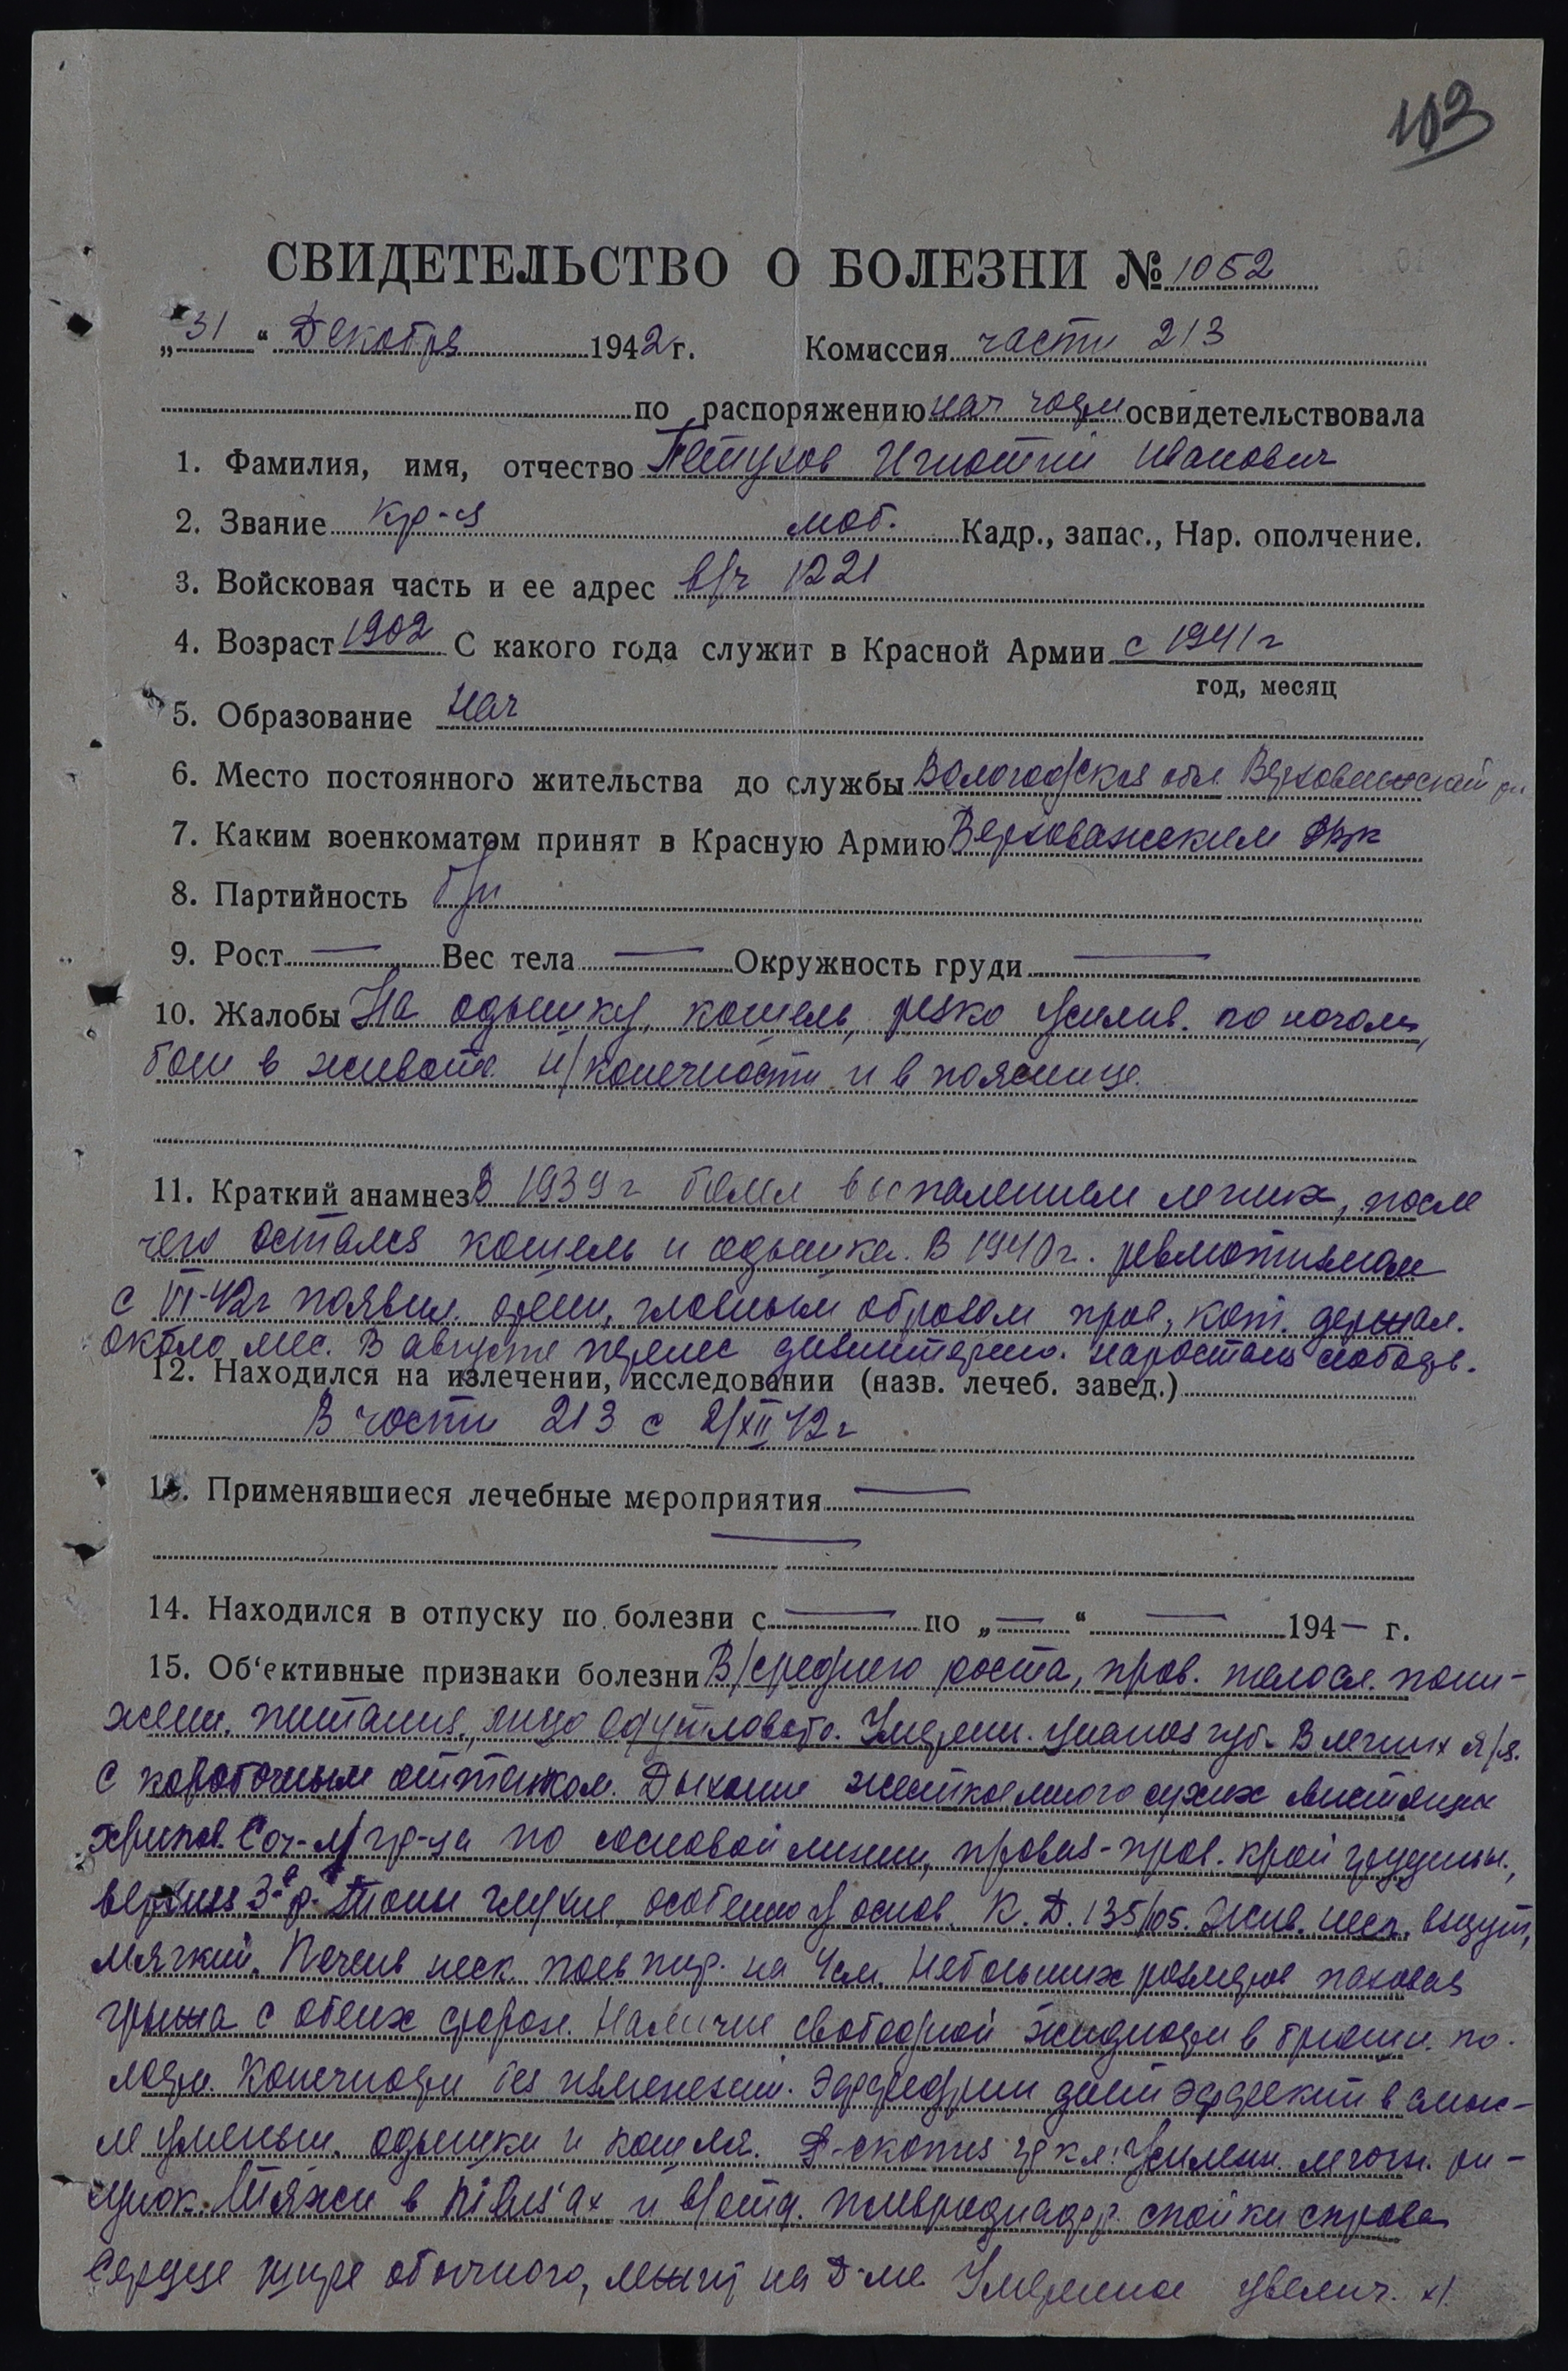 103
СВИДЕТЕЛЬСТВО О БОЛЕЗНИ № 1052
„31“ Декабря 1942 г. Комиссия части 213
по распоряжению нач части освидетельствовала
1. Фамилия, имя, отчество Петухов Игнатий Иванович
2. Звание кр-ц моб. Кадр., запас., Нар. ополчение.
3. Войсковая часть и ее адрес в/ч 1221
4. Возраст 1902 С какого года служит в Красной Армии с 1941 г
год, месяц
5. Образование нач
6. Место постоянного жительства до службы Вологодская обл. Верховажский рн
7. Каким военкоматом принят в Красную Армию Верховажским РВК
8. Партийность б/п
9. Рост — Вес тела — Окружность груди —
10. Жалобы На одышку, кашель, резко усилив. по ночам,
боли в животе н/конечности и в пояснице.
11. Краткий анамнез В 1939 г болел воспалением легких, после
чего остался кашель и одышка. В 1940 г. ревматизмом
с VI-42 г появил. отеки, главным образом прав, кот. держал.
около мес. В августе перенес дизентерию. наростала слабость.
12. Находился на излечении, исследовании (назв. лечеб. завед.)
В части 213 с 2/XII 42 г
13. Применявшиеся лечебные мероприятия —
—
14. Находился в отпуску по болезни с — по „—“ — 194— г.
15. Об‘ективные признаки болезни В/среднего роста, прав. телосл. пони-
жен. питания, лицо одутловато. Умерен. цианоз губ. В легких
с коробочным оттенком. Дыхание жесткое много сухих свистящих
хрипов. гр-ца по сосковой линии, правая - прав. край грудины,
верхняя 3-е р. Тоны глухие, особенно у основ. К. Д. 135/105. Жив. неск. вздут,
мягкий. Печень неск. на 4 см. Небольших размеров паховая
грыжа с обеих сторон. Наличие свободной жидкости в брюшн. по-
лости. Конечности без изменений. Эффедрин дает эффект в смыс-
ле уменьш. одышки и кашля. R-скопия гр кл: Усилен. легочн. ри-
сунок. Тяжи в hilus'ах и плевродиафр. спайки справа
Сердце шире обычного, лежит на D-ме. Умеренное увелич.